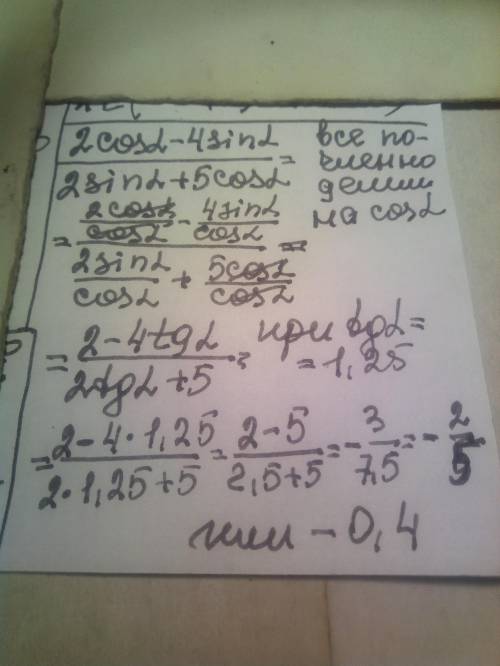 2cosα-4sinα
/
2sinα+5cosα
=
все по-
членно
делим
на cosα
= (2cosα/cosα - 4sinα/cosα) / (2sinα/cosα + 5cosα/cosα) =
= (2-4tgα)/(2tgα+5) = при tgα=
=1,25
= (2-4·1,25)/(2·1,25+5) = (2-5)/(2,5+5) = -3/7,5 = -2/5
или -0,4